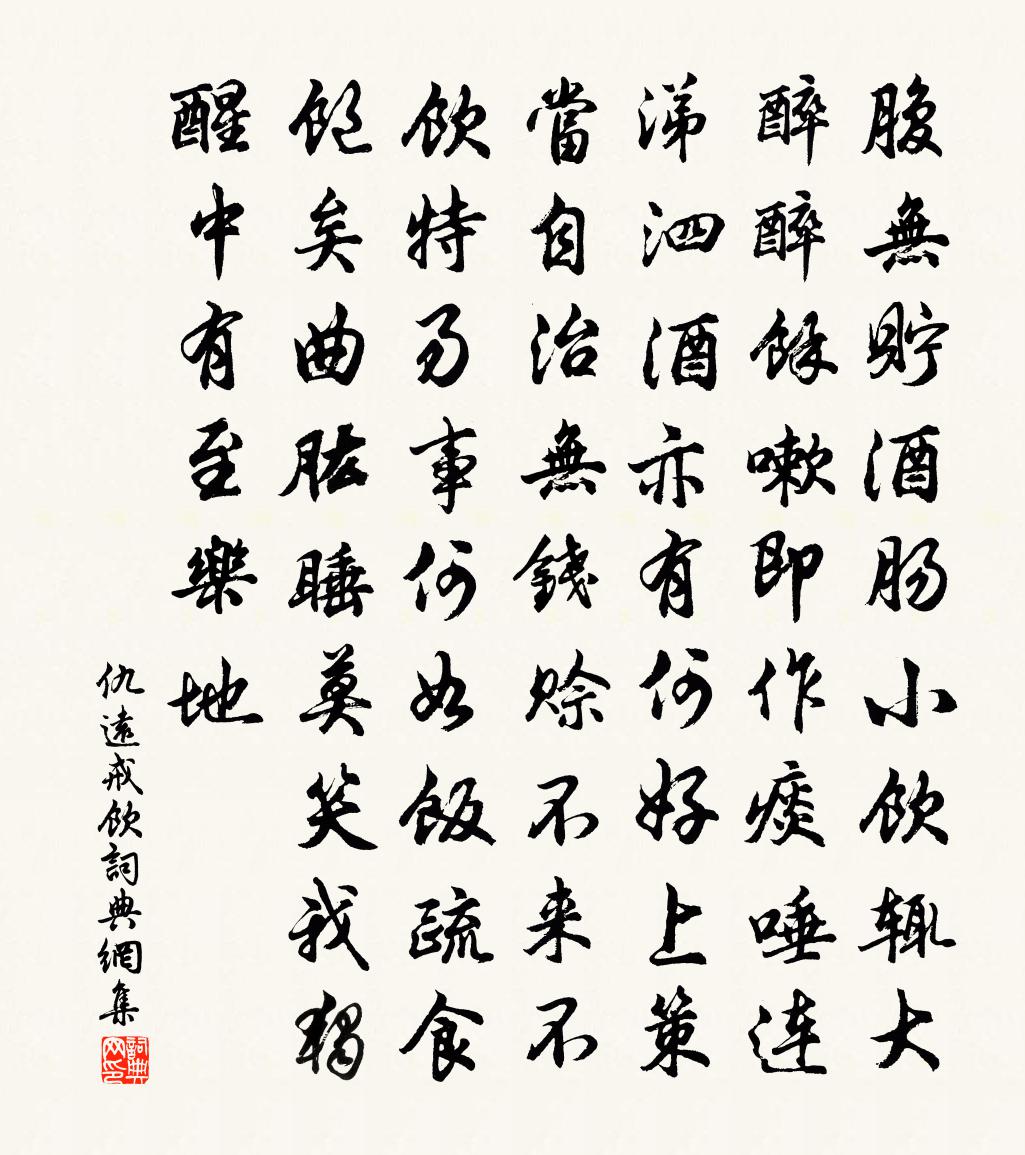 腹無貯酒肠小飲辄大
醉醉餘嗽即作痰唾连
涕泗酒亦有何好上策
當自治無錢赊不来不
飲特易事何如飯疏食
飽矣曲肱睡莫笑我獨
醒中有至樂地
仇遠戒飲詞典網集
詞典网印